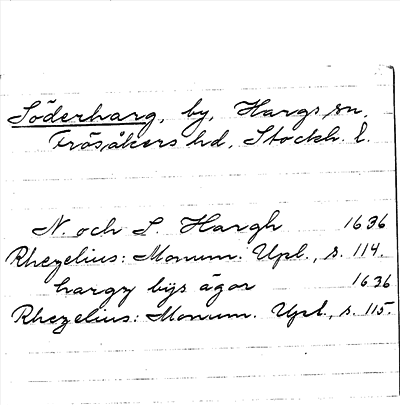 Söderharg, by, Hargs sn.
Frösåkers hd, Stockh. l.
N. och S. Hargh 1636
Rhezelius: Monum. Upl., s. 114.
hargz bijs ägor 1636
Rhezelius: Monum. Upl., s. 115.